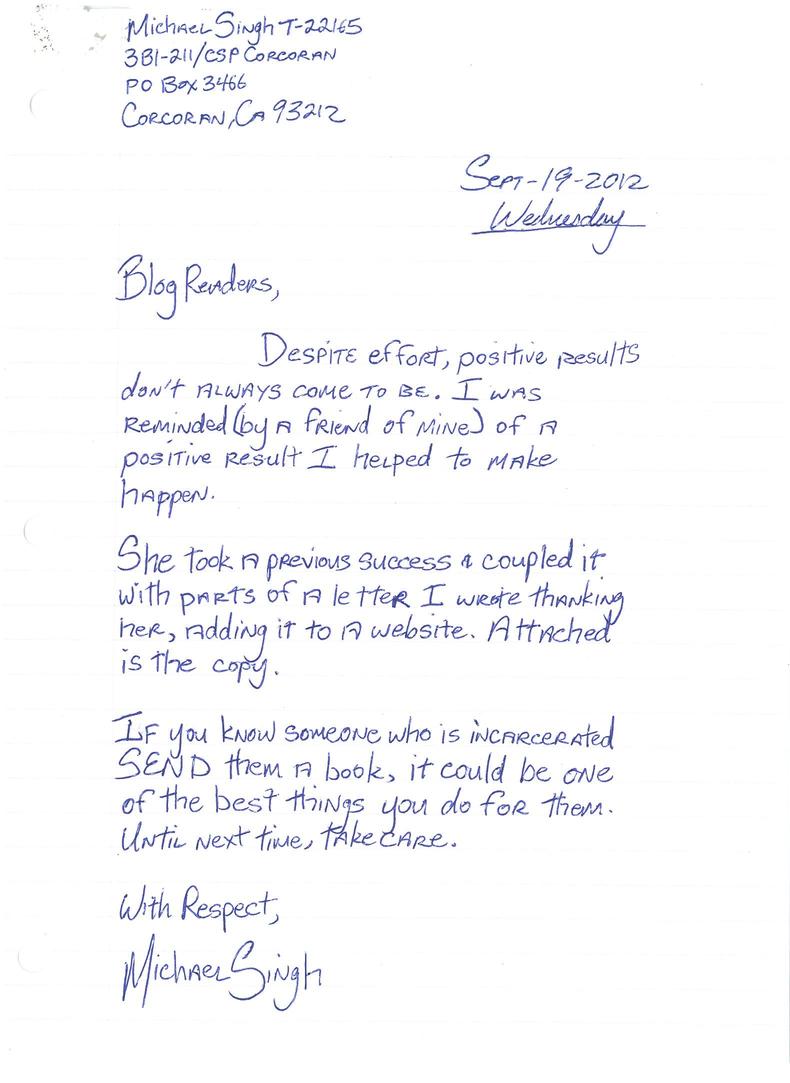 Michael Singh T-22165
3B1-211/CSP Corcoran
PO Box 3466
Corcoran, Ca 93212
Sept-19-2012
Wednesday
Blog Readers,
Despite effort, positive results
don't always come to be. I was
reminded (by a friend of mine) of a
positive result I helped to make
happen.
She took a previous success & coupled it
with parts of a letter I wrote thanking
her, adding it to a website. Attached
is the copy.
If you know someone who is incarcerated
SEND them a book, it could be one
of the best things you do for them.
Until next time, take care.
With Respect,
Michael Singh